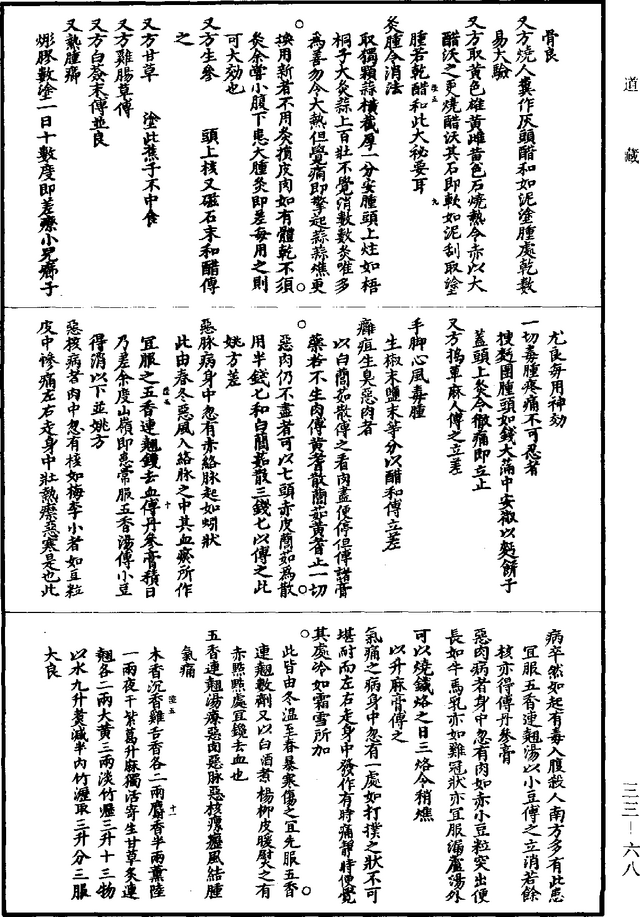 道藏
骨良
又方燒人糞作灰頭醋和如泥塗腫處乾數
易大驗
又方取黃色雄黃雌黃色石燒熱令赤以大
醋沃之更燒醋沃其石即軟如泥刮取塗
腫若乾醋和此大秘要耳
灸腫令消法
取獨顆蒜橫截厚一分安腫頭上炷如梧
桐子大灸蒜上百壯不覺消數數灸唯多
為善勿令大熱但覺痛即擎起蒜蒜燋更
換用新者不用灸損皮肉如有體乾不須
灸余嘗小腹下患大腫灸即差每用之則
可大効也
又方生參 頭上核又磁石末和醋傅
之
又方甘草 塗此蕉子不中食
又方雞腸草傅
又方白蘞末傅並良
又熱腫癤
煅膠數塗一日十數度即差療小兒癤子
尤良每用神効
一切毒腫疼痛不可忍者
搜麪團腫頭如錢大滿中安椒以麪餅子
蓋頭上灸令徹痛即立止
又方搗萆麻人傅之立差
手脚心風毒腫
生椒末鹽末等分以醋和傅立差
癰疽生臭惡肉者
以白䕡茹散傅之看肉盡便停但傅諸膏
藥若不生肉傅黃耆散䕡茹黃耆止一切
惡肉仍不盡者可以七頭赤皮䕡茹為散
用半錢匕和白䕡茹散三錢匕以傅之此
姚方差
惡脉病身中忽有赤絡脉起如蚓狀
此由春冬惡風入絡脉之中其血瘀所作
宜服之五香連翹鑱去血傅丹參膏積日
乃差余度山嶺即患常服五香湯傅小豆
得消以下並姚方
惡核病者肉中忽有核如梅李小者如豆粒
皮中慘痛左右走身中壯熱㾕惡寒是也此
病卒然如起有毒入腹殺人南方多有此患
宜服五香連翹湯以小豆傅之立消若餘
核亦得傅丹參膏
惡肉病者身中忽有肉如赤小豆粒突出便
長如牛馬乳亦如雞冠狀亦宜服漏蘆湯外
可以燒鐵烙之日三烙令稍燋
以升麻膏傅之
氣痛之病身中忽有一處如打撲之狀不可
堪耐而左右走身中發作有時痛靜時便覺
其處冷如霜雪所加
此皆由冬溫至春暴寒傷之宜先服五香
連翹數劑又以白酒煮楊柳皮暖熨之有
赤點點處宜鑱去血也
五香連翹湯療惡肉惡脉惡核瘰癧風結腫
氣痛
木香沉香雞舌香各二兩麝香半兩薰陸
一兩夜干紫葛升麻獨活寄生甘草炙連
翹各二兩大黃三兩淡竹瀝三升十三物
以水九升煮減半內竹瀝取三升分三服
大良
三三—六八